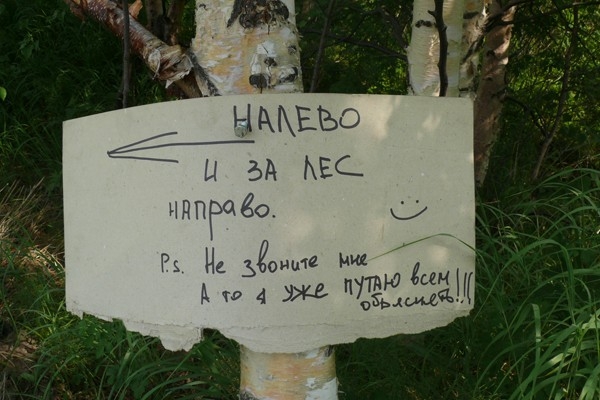 НАЛЕВО
И ЗА ЛЕС
направо.
P.s. Не звоните мне
А то я уже ПУТАЮ всем
объяснять!!!